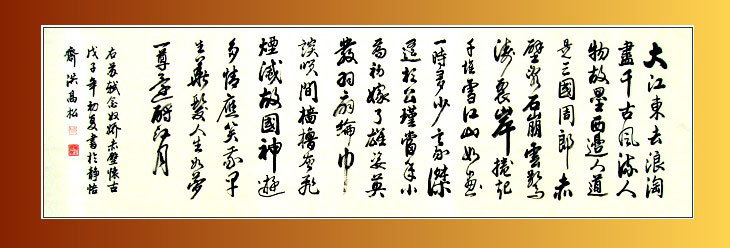 大江東去浪淘
盡千古風流人
物故壘西邊人道
是三國周郎赤
壁亂石崩雲驚
濤裂岸捲起
千堆雪江山如畫
一時多少豪傑
遙想公瑾當年小
喬初嫁了雄姿英
發羽扇綸巾
談咲間檣櫓灰飛
煙滅故國神遊
多情應笑我早
生華髮人生如夢
一尊還酹江月
右蘇軾念奴嬌赤壁懷古
戊子年初夏書於靜怡
齋洪高松